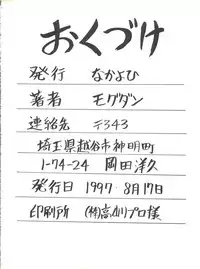 おくづけ
発行 なかよひ
著者 モグダン
連絡先 〒343
埼玉県越谷市神明町
1-74-24 岡田洋久
発行日 1997・8月17日
印刷所 ㈱高川プロ様